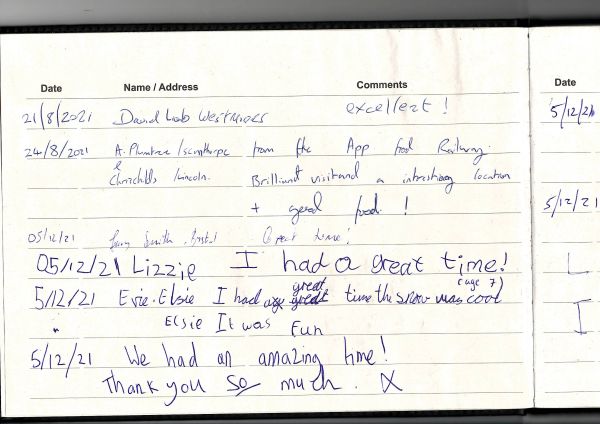 Date Name / Address Comments
21/8/2021 David excellent !
24/8/2021 A. /scunthorpe from the App Frod Railway.
& Lincoln. Brilliant visit and a intresting location
+ good food !
05/12/21 Smith, Great time!
05/12/21 Lizzie I had a great time!
(age 7)
5/12/21 Evie. Elsie I had great time the snow was cool
" Elsie It was Fun
5/12/21 We had an amazing time!
Thank you so much. X
Date
5/12/21
5/12/21